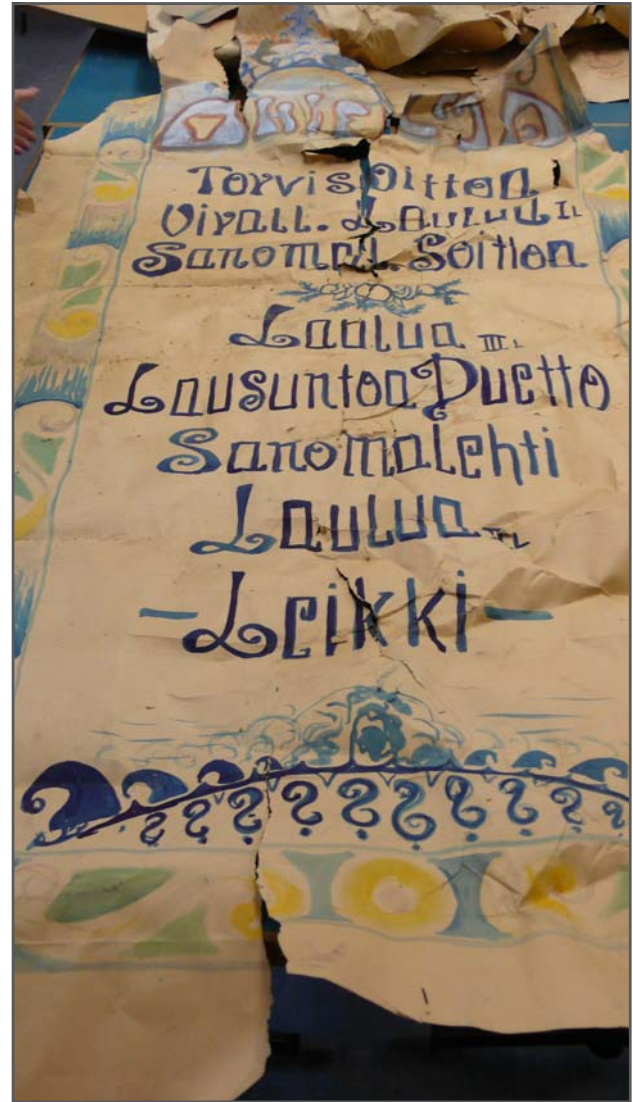 Torvisoittoa
Virall. Laulua II.
Soittoa
Laulua III.
Lausuntoa Duetto
Sanomalehti
Laulua
- Leikki -